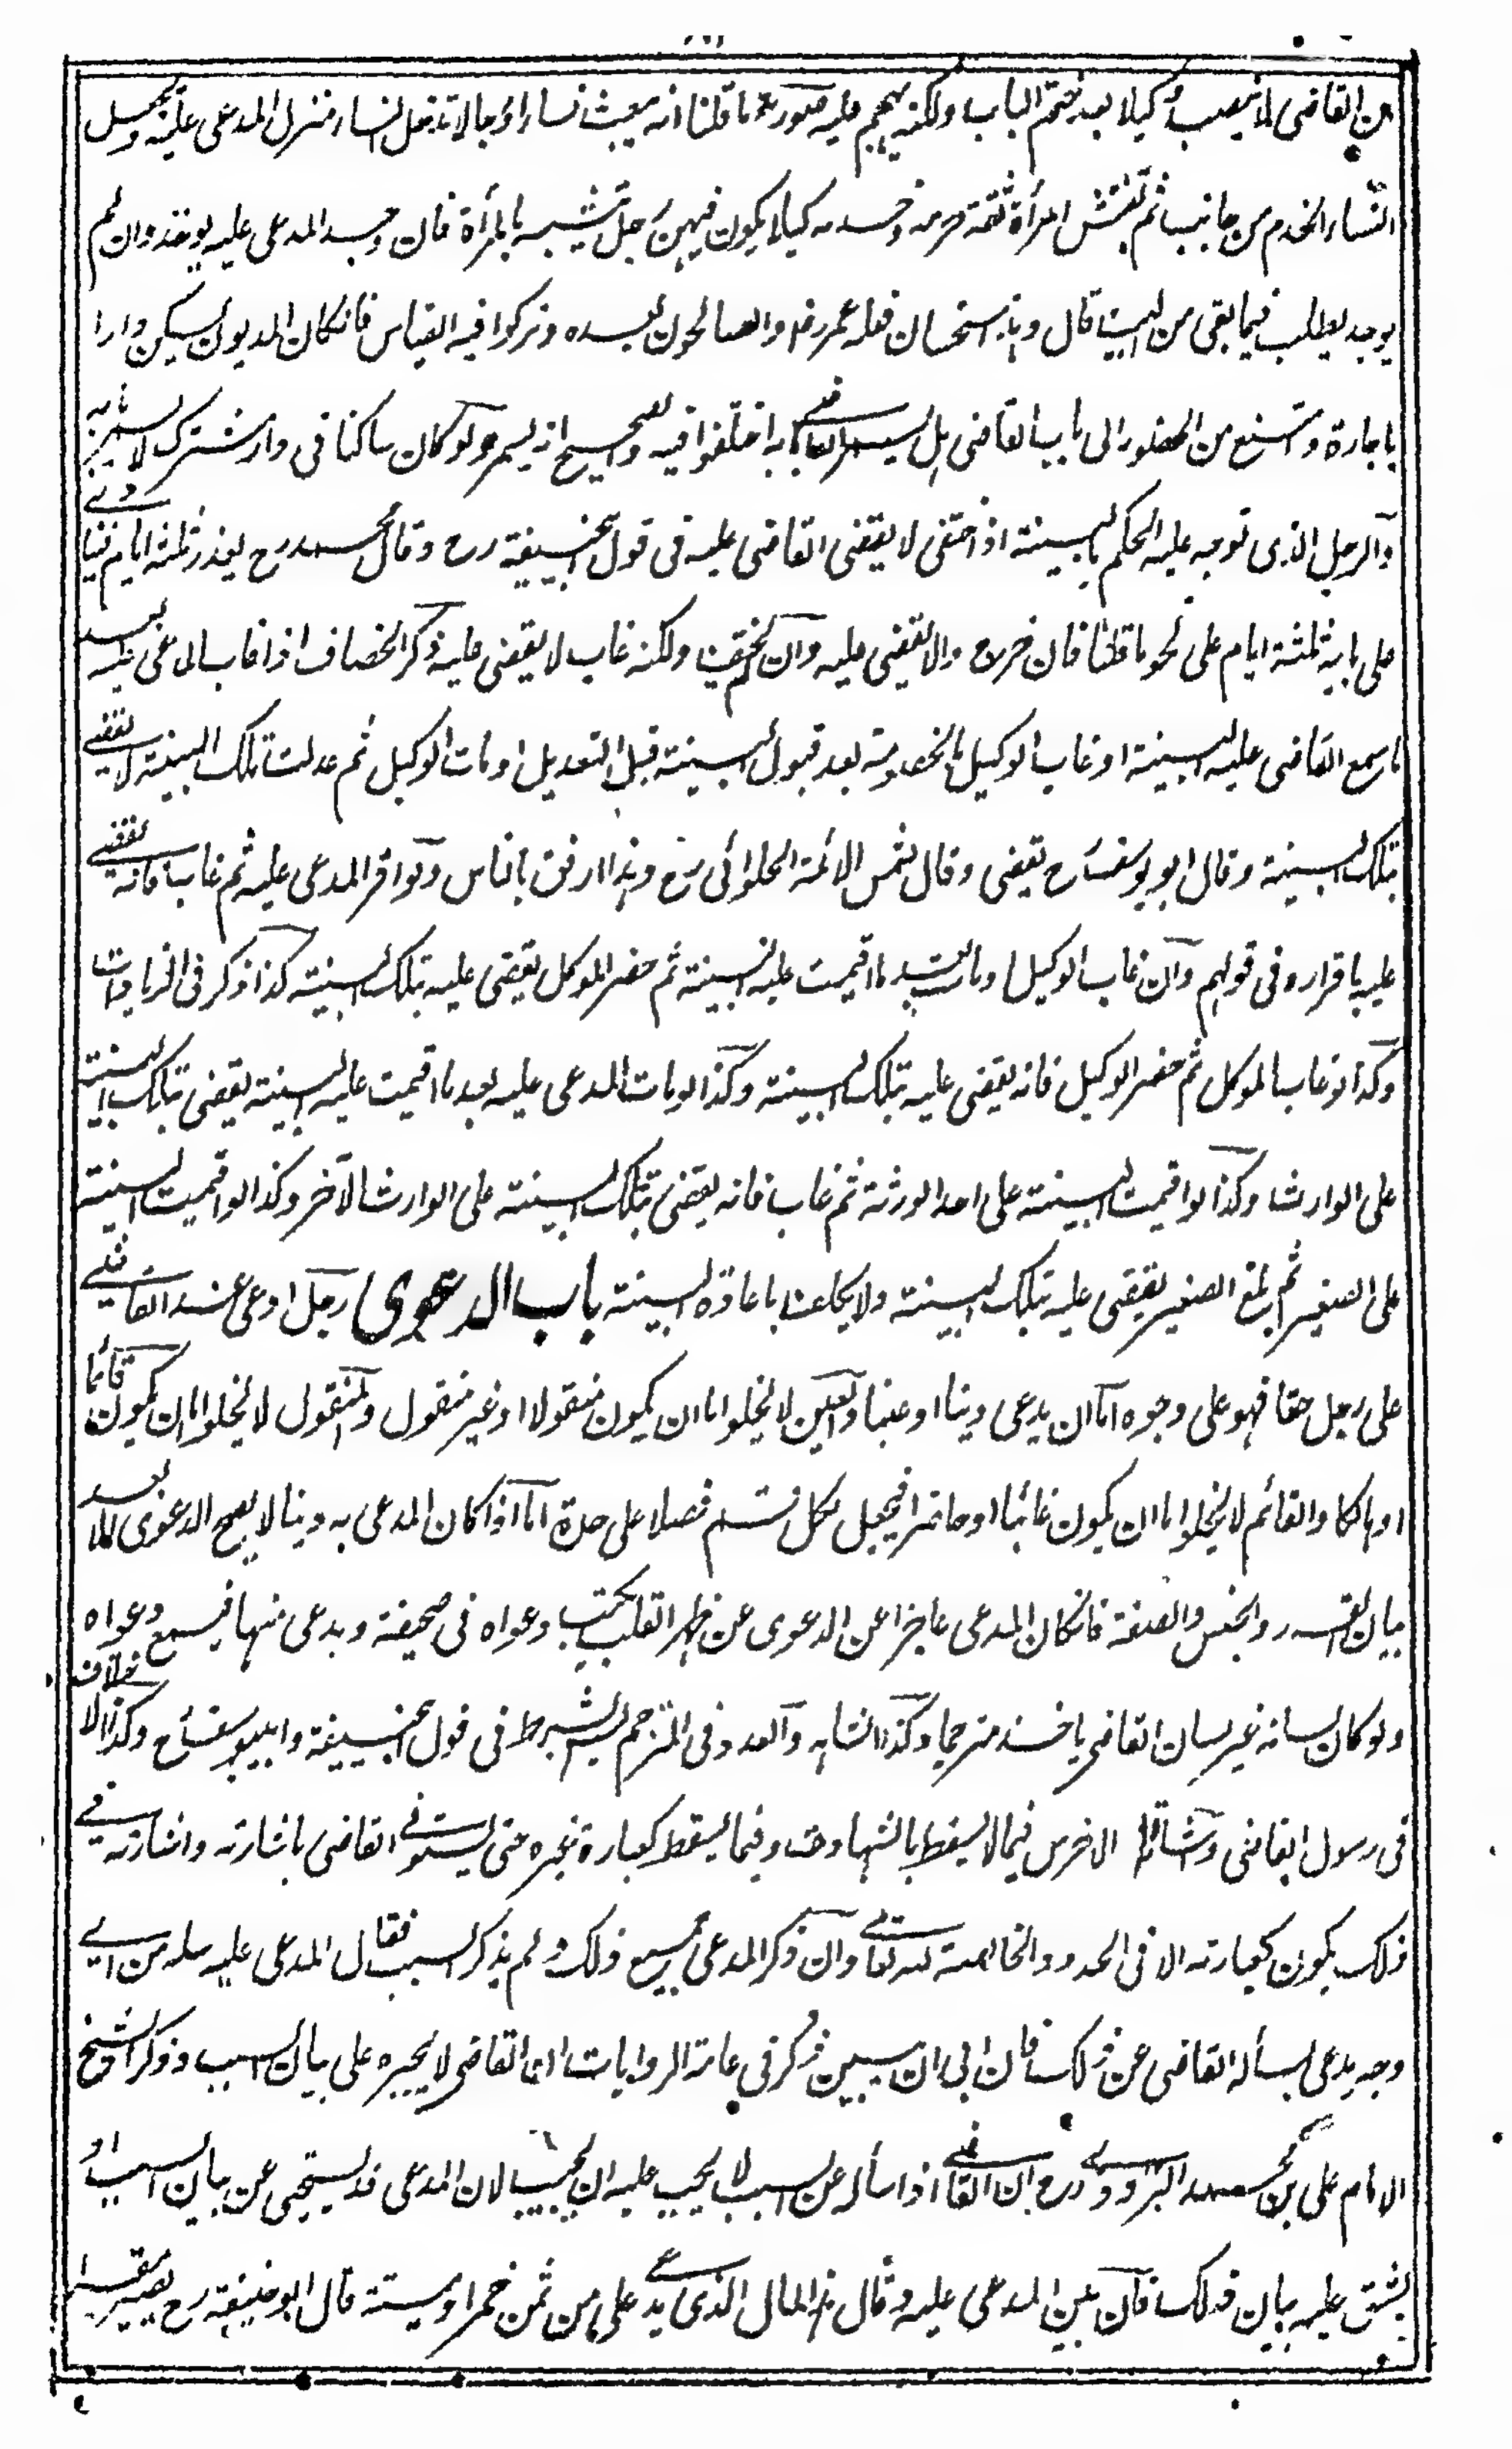 من القاضى لا ينصب وكيلا بعد ختم الباب ولكنه يهجم عليه صورة ما قلنا انه يبعث نساء ورجالا تدخل النساء منزل المدعى عليه وتجعل
النساء الخدم من جانب ثم تفتش امرأة ثقة حرمه وخدمه كيلا يكون فيهن رجل تشبه بالمرأة فان وجد المدعى عليه يوخذ وان لم
يوجد يطلب فيما بقى من البيت قال وهذا استحسان فعله عمر رض والصالحون بعده وتركوا فيه القياس فانكان المديون يسكن دارا
باجارة وامتنع من الحضور الى باب القاضى هل يسمر القاضى بابه اختلفوا فيه والصحيح انه يسمر ولو كان ساكنا فى دار مشترك لا يسمر بابه
والرجل الذى توجه عليه الحكم بالبينة اذا اختفى لا يقضى القاضى عليه فى قول ابيحنيفة رح وقال محمد رح يعذر ثلثة ايام فينادى
على بابه ثلثة ايام على نحو ما قلنا فان خرج والا يقضى عليه وان لم يختف ولكنه غاب لا يقضى عليه ذكر الخصاف اذا غاب المدعى عليه بعد
ما سمع القاضى عليه البينة او غاب الوكيل بالخصومة بعد قبول البينة قبل التعديل او مات الوكيل ثم عدلت تلك البينة لا يقضى
بتلك البينة وقال ابو يوسف رح يقضى وقال شمس الائمة الحلوائى رح وهذا ارفق بالناس ولو اقر المدعى عليه ثم غاب فانه يقضى
عليه باقراره فى قولهم وان غاب الوكيل او مات بعد ما اقيمت عليه البينة ثم حضر الموكل يقضى عليه بتلك البينة كذا ذكر فى الزيادات
وكذا لو غاب الموكل ثم حضر الوكيل فانه يقضى عليه بتلك البينة وكذا لو مات المدعى عليه بعد ما اقيمت عليه البينة يقضى بتلك البينة
على الوارث وكذا لو اقيمت البينة على احد الورثة ثم غاب فانه يقضى بتلك البينة على الوارث الآخر وكذا لو اقيمت البينة
على الصغير ثم بلغ الصغير يقضى عليه بتلك البينة ولا يكلف باعادة البينة باب الدعوى رجل ادعى عند القاضى
على رجل حقا فهو على وجوه اما ان يدعى دينا او عينا والعين لا يخلوا اما ان يكون منقولا او غير منقول والمنقول لا يخلوا اما ان يكون قائما
او هالكا والقائم لا يخلوا اما ان يكون غائبا او حاضرا فيجعل لكل قسم فصلا على حدة اما اذا كان المدعى به دينا لا يصح الدعوى الا بعد
بيان القدر والجنس والصفة فانكان المدعى عاجزا عن الدعوى عن ظهر القلب يكتب دعواه فى صحيفة ويدعى منها فيسمع دعواه
ولو كان لسانه غير لسان القاضى ياخذ مترجما وكذا الشاهد والعدد فى المترجم ليس بشرط فى قول ابيحنيفة وابييوسف رح وكذا الاختلاف
فى رسول القاضى واشارة الاخرس فيما لا يسقط بالشبهات وفيما يسقط كعبارة غيره حتى يستوفى القاضى باشارته واشارته فى
ذلك يكون كعبارته الا فى الحدود الخالصة لله تعالى وان ذكر المدعى جميع ذلك ولم يذكر السبب فقال المدعى عليه سله من اى
وجه يدعى يسأله القاضى عن ذلك فان ابى ان يبين ذكر فى عامة الروايات ان القاضى لا يجبره على بيان السبب وذكر الشيخ
الامام على بن محمد البزدوى رح ان القاضى اذا سأله عن السبب لا يجب عليه ان يجيب لان المدعى قد يستحيى عن بيان السبب او
يشق عليه بيان ذلك فان بين المدعى عليه وقال هذا المال الذى يدعى على من ثمن خمر او ميتة قال ابو حنيفة رح يصير مقرا